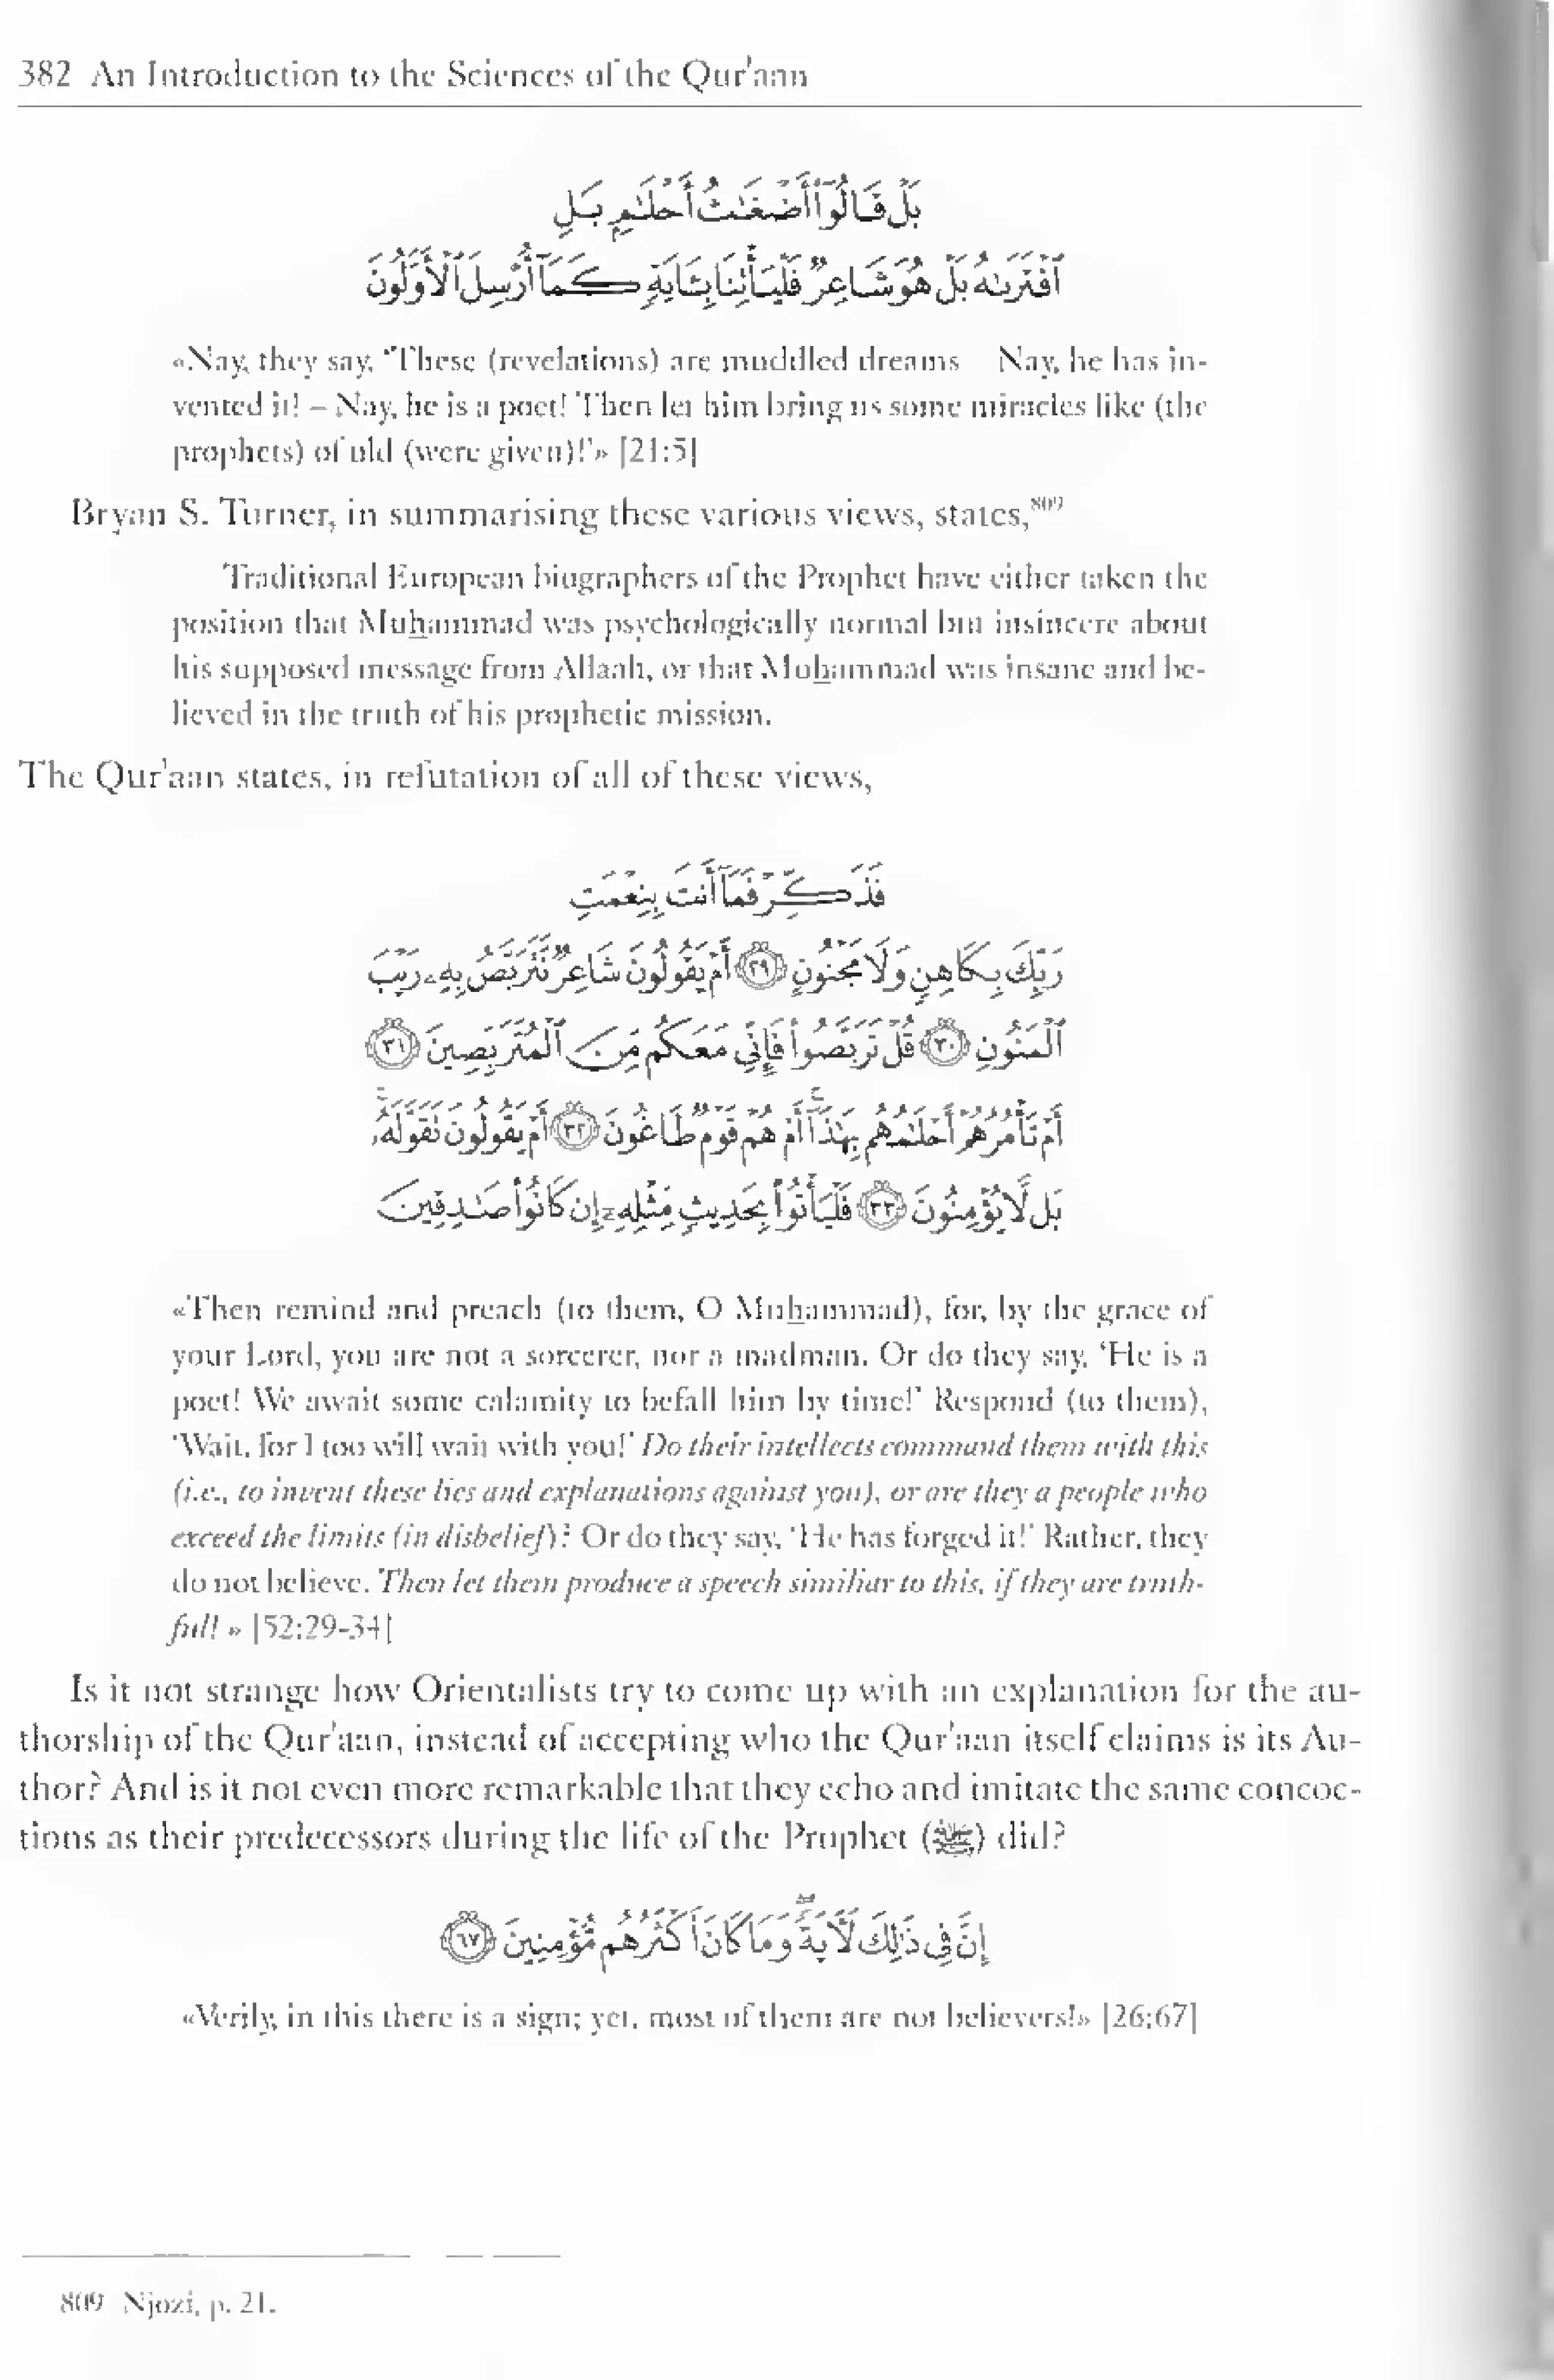 382 An Introduction to the Sciences of the Qur'aan
بَلْ قَالُوٓا۟ أَضْغَـٰثُ أَحْلَـٰمٍۭ بَلِ
ٱفْتَرَىٰهُ بَلْ هُوَ شَاعِرٌ فَلْيَأْتِنَا بِـَٔايَةٍ كَمَآ أُرْسِلَ ٱلْأَوَّلُونَ
«Nay, they say, 'These (revelations) are muddled dreams – Nay, he has in-
vented it! – Nay, he is a poet! Then let him bring us some miracles like (the
prophets) of old (were given)!'» [21:5]
Bryan S. Turner, in summarising these various views, states,⁸⁰⁹
Traditional European biographers of the Prophet have either taken the
position that Muḥammad was psychologically normal but insincere about
his supposed message from Allaah, or that Muḥammad was insane and be-
lieved in the truth of his prophetic mission.
The Qur'aan states, in refutation of all of these views,
فَذَكِّرْ فَمَآ أَنتَ بِنِعْمَتِ
رَبِّكَ بِكَاهِنٍ وَلَا مَجْنُونٍ ٢٩ أَمْ يَقُولُونَ شَاعِرٌ نَّتَرَبَّصُ بِهِۦ رَيْبَ
ٱلْمَنُونِ ٣٠ قُلْ تَرَبَّصُوا۟ فَإِنِّى مَعَكُم مِّنَ ٱلْمُتَرَبِّصِينَ ٣١
أَمْ تَأْمُرُهُمْ أَحْلَـٰمُهُم بِهَـٰذَآ أَمْ هُمْ قَوْمٌ طَاغُونَ ٣٢ أَمْ يَقُولُونَ تَقَوَّلَهُۥ
بَل لَّا يُؤْمِنُونَ ٣٣ فَلْيَأْتُوا۟ بِحَدِيثٍ مِّثْلِهِۦٓ إِن كَانُوا۟ صَـٰدِقِينَ
«Then remind and preach (to them, O Muḥammad), for, by the grace of
your Lord, you are not a sorcerer, nor a madman. Or do they say, 'He is a
poet! We await some calamity to befall him by time!' Respond (to them),
'Wait, for I too will wait with you!' Do their intellects command them with this
(i.e., to invent these lies and explanations against you), or are they a people who
exceed the limits (in disbelief)? Or do they say, 'He has forged it!' Rather, they
do not believe. Then let them produce a speech similiar to this, if they are truth-
ful! » [52:29-34]
Is it not strange how Orientalists try to come up with an explanation for the au-
thorship of the Qur'aan, instead of accepting who the Qur'aan itself claims is its Au-
thor? And is it not even more remarkable that they echo and imitate the same concoc-
tions as their predecessors during the life of the Prophet (ﷺ) did?
إِنَّ فِى ذَٰلِكَ لَـَٔايَةً وَمَا كَانَ أَكْثَرُهُم مُّؤْمِنِينَ ٦٧
«Verily, in this there is a sign; yet, most of them are not believers!» [26:67]
809 Njozi, p. 21.